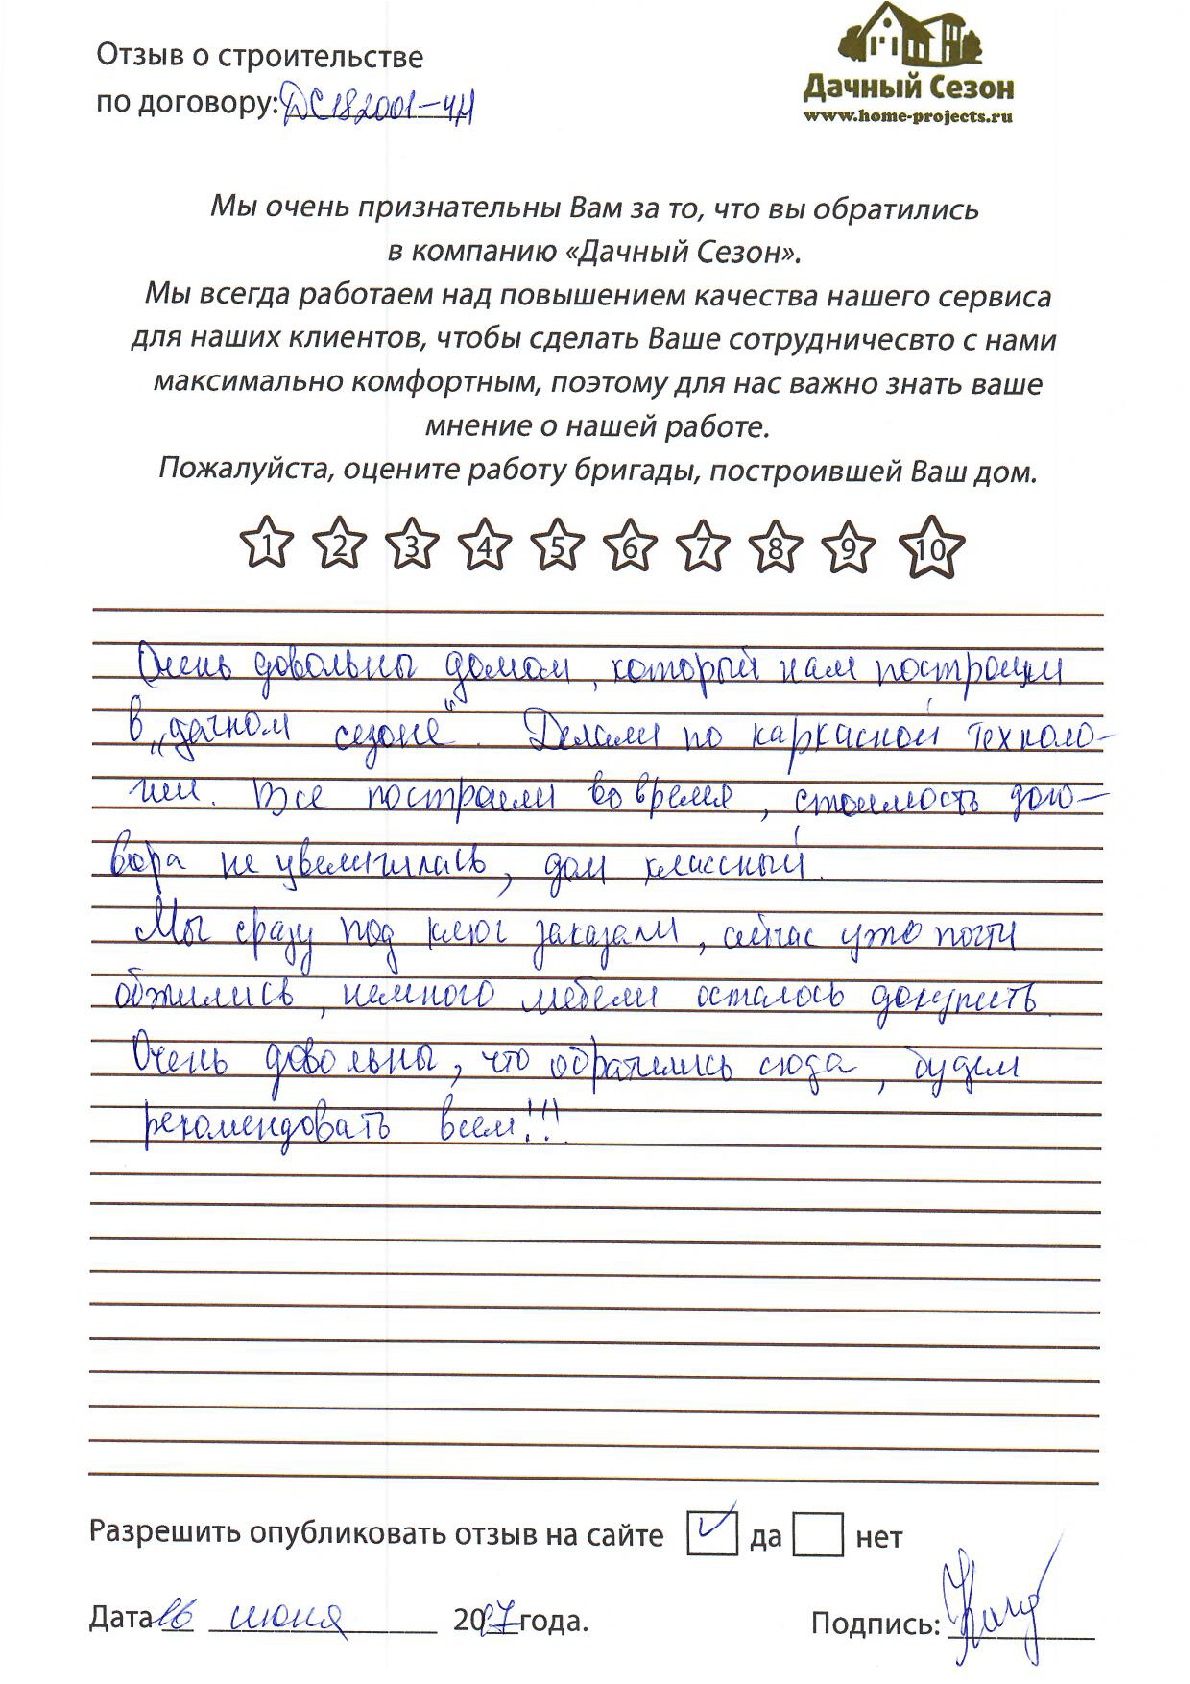 Отзыв о строительстве
по договору: ДС182001-ЧН
Дачный Сезон
www.home-projects.ru
Мы очень признательны Вам за то, что вы обратились
в компанию «Дачный Сезон».
Мы всегда работаем над повышением качества нашего сервиса
для наших клиентов, чтобы сделать Ваше сотрудничесвто с нами
максимально комфортным, поэтому для нас важно знать ваше
мнение о нашей работе.
Пожалуйста, оцените работу бригады, построившей Ваш дом.
1 2 3 4 5 6 7 8 9 10
Очень довольны домом, который нам построили
в „дачном сезоне“. Делали по каркасной техноло-
гии. Все построили во время, стоимость дого-
вора не увеличилась, дом классный.
Мы сразу под ключ заказали, сейчас уже почти
обжились, немного мебели осталось докупить.
Очень довольны, что обратились сюда, будем
рекомендовать всем!!!
Разрешить опубликовать отзыв на сайте да нет
Дата 16 июня 2017 года. Подпись: